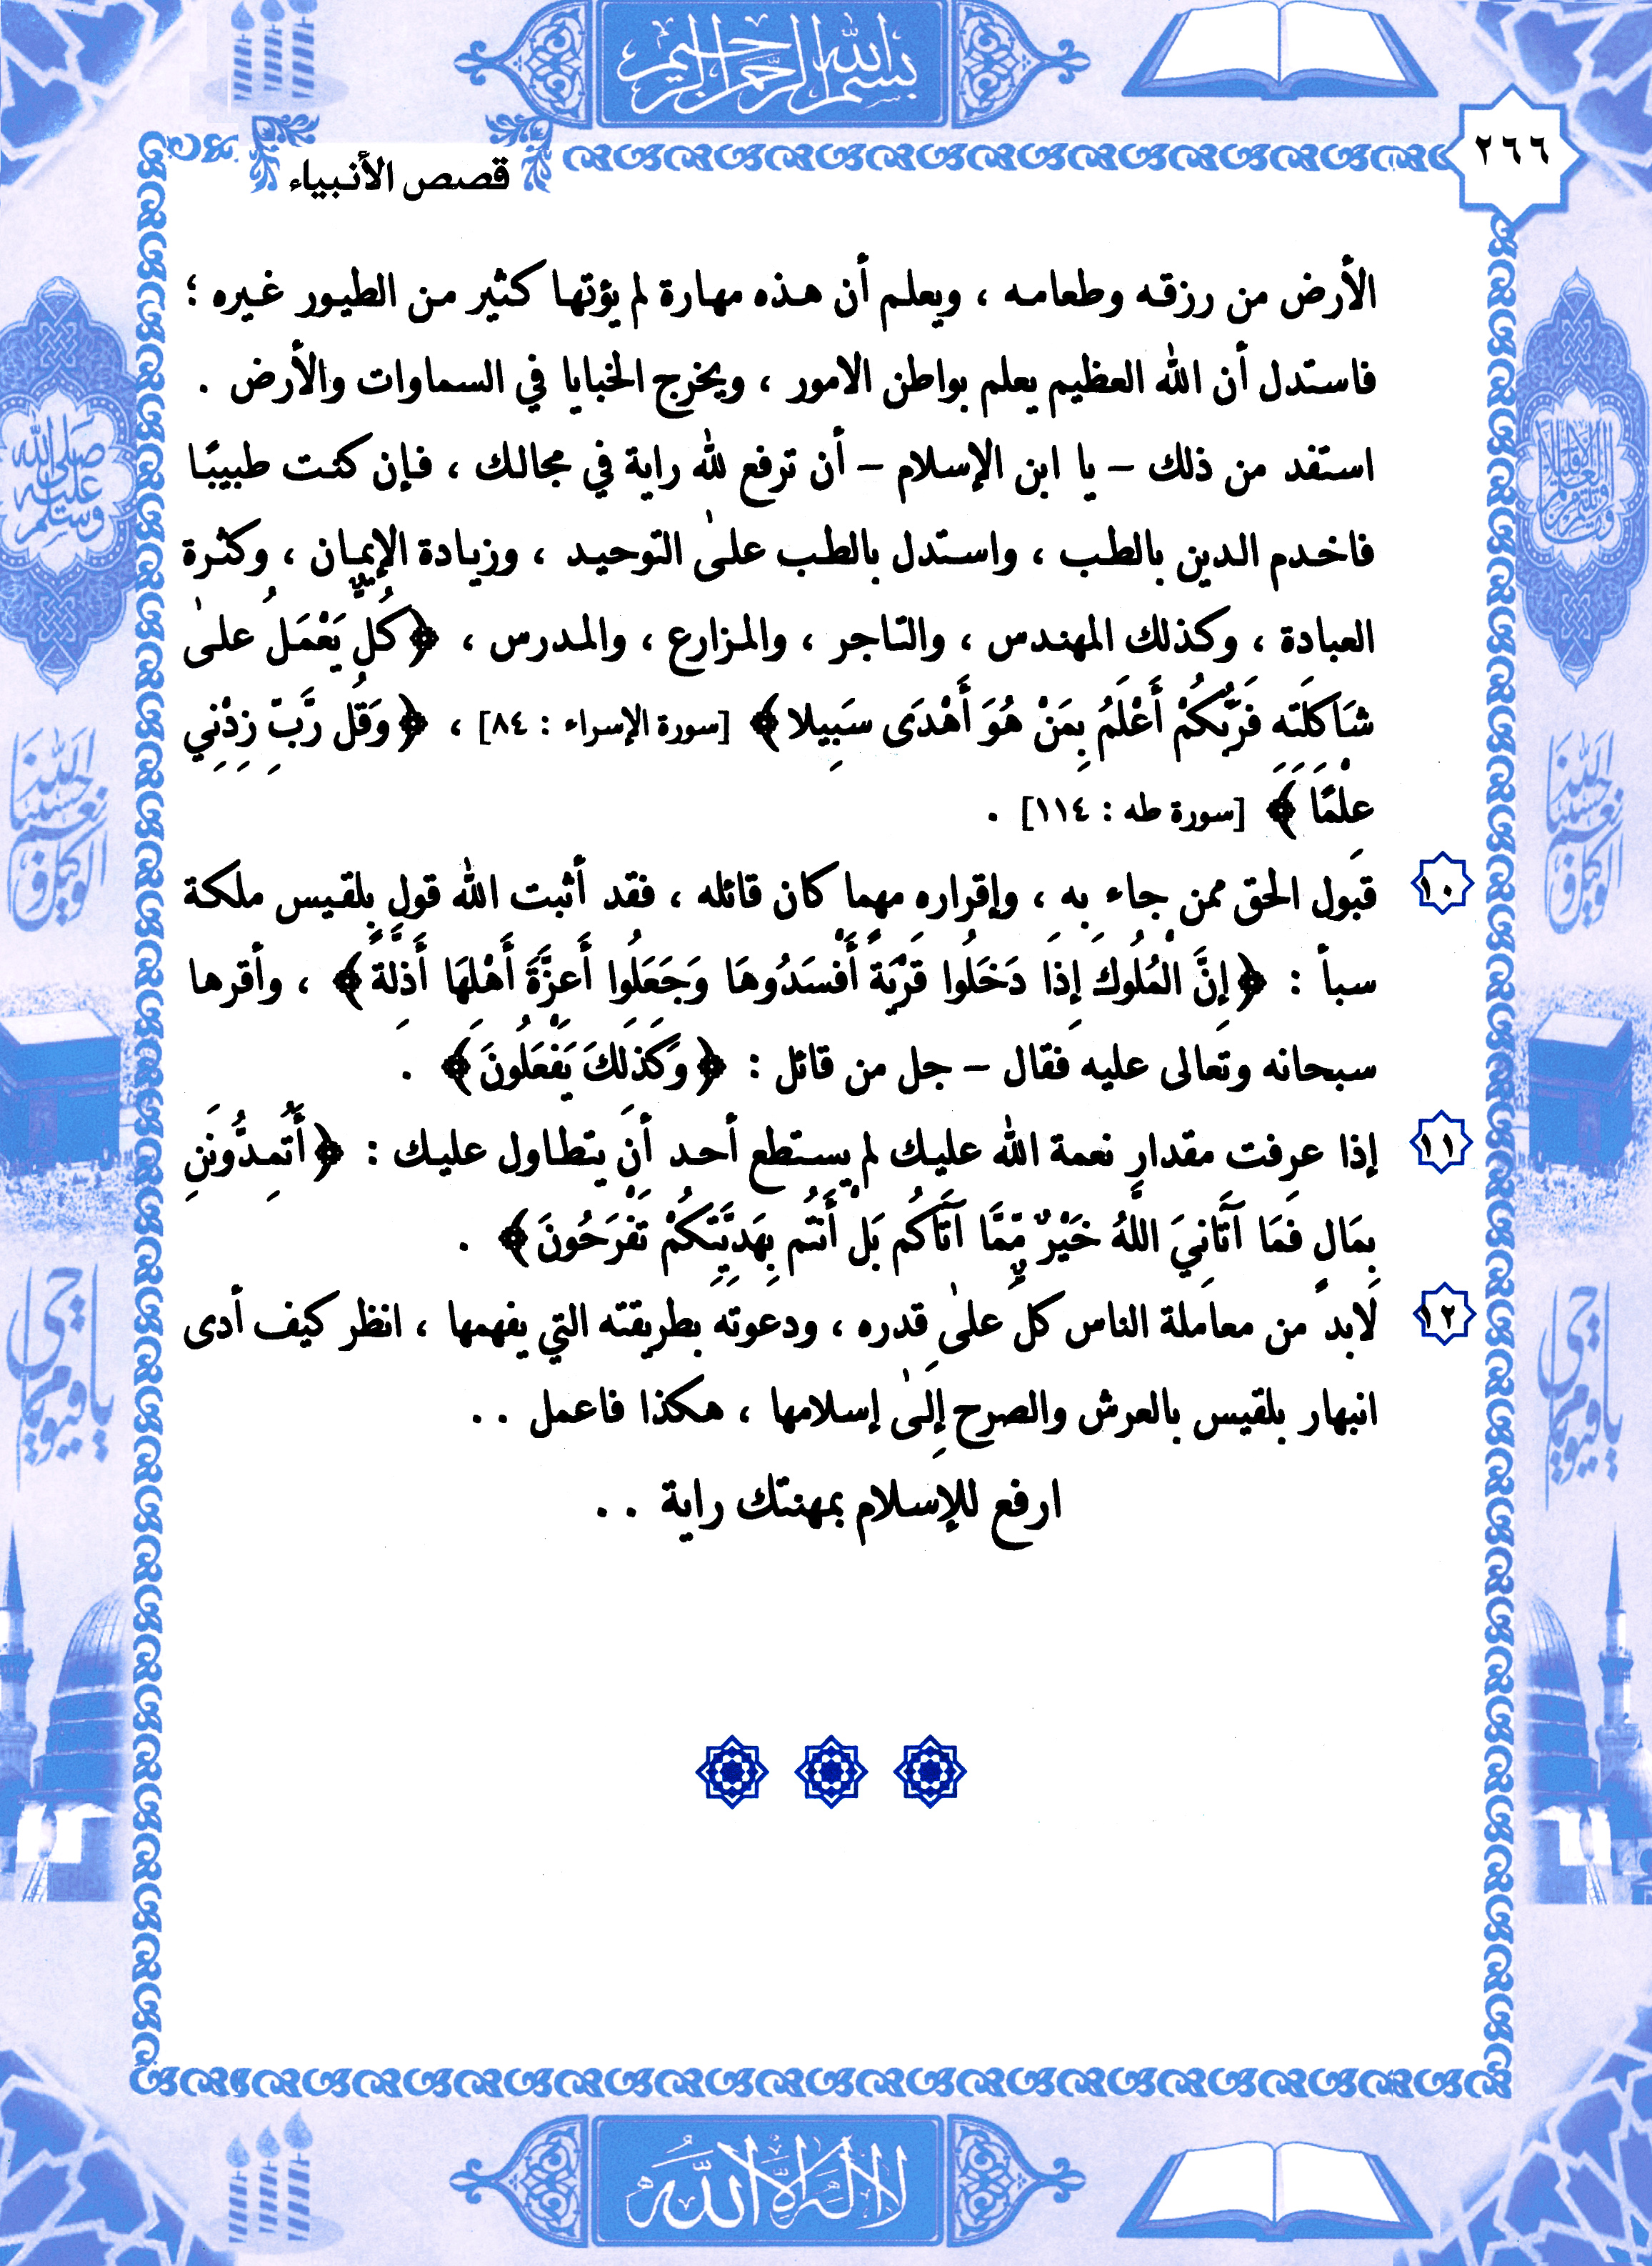 بسم الله الرحمن الرحيم
٢٦٦
قصص الأنبياء
الأرض من رزقه وطعامه ، ويعلم أن هذه مهارة لم يؤتها كثير من الطيور غيره ؛
فاستدل أن الله العظيم يعلم بواطن الامور ، ويخرج الخبايا في السماوات والأرض .
استفد من ذلك – يا ابن الإسلام – أن ترفع لله راية في مجالك ، فإن كنت طبيبًا
فاخدم الدين بالطب ، واستدل بالطب علىٰ التوحيد ، وزيادة الإيمان ، وكثرة
العبادة ، وكذلك المهندس ، والتاجر ، والمزارع ، والمدرس ، ﴿كُلٌّ يَعْمَلُ علىٰ
شَاكِلَتِهِ فَرَبُّكُمْ أَعْلَمُ بِمَنْ هُوَ أَهْدَى سَبِيلا﴾ [سورة الإسراء : ٨٤] ، ﴿وَقُل رَّبِّ زِدْنِي
عِلْمًا﴾ [سورة طه : ١١٤] .
١٠ قبول الحق ممن جاء به ، وإقراره مهما كان قائله ، فقد أثبت الله قول بلقيس ملكة
سبأ : ﴿إِنَّ الْمُلُوكَ إِذَا دَخَلُوا قَرْيَةً أَفْسَدُوهَا وَجَعَلُوا أَعِزَّةَ أَهْلِهَا أَذِلَّةً﴾ ، وأقرها
سبحانه وتعالى عليه فقال – جل من قائل : ﴿وَكَذَلِكَ يَفْعَلُونَ﴾ .
١١ إذا عرفت مقدار نعمة الله عليك لم يستطع أحد أن يتطاول عليك : ﴿أَتُمِدُّونَنِ
بِمَالٍ فَمَا آتَانِيَ اللَّهُ خَيْرٌ مِّمَّا آتَاكُم بَلْ أَنتُم بِهَدِيَّتِكُمْ تَفْرَحُونَ﴾ .
١٢ لابد من معاملة الناس كل علىٰ قدره ، ودعوته بطريقته التي يفهمها ، انظر كيف أدى
انبهار بلقيس بالعرش والصرح إلىٰ إسلامها ، هكذا فاعمل . .
ارفع للإسلام بمهنتك راية . .
صلى الله عليه وسلم
حسبنا الله ونعم الوكيل
حسبنا الله ونعم الوكيل
يا حي يا قيوم
يا حي يا قيوم
لا إله إلا الله